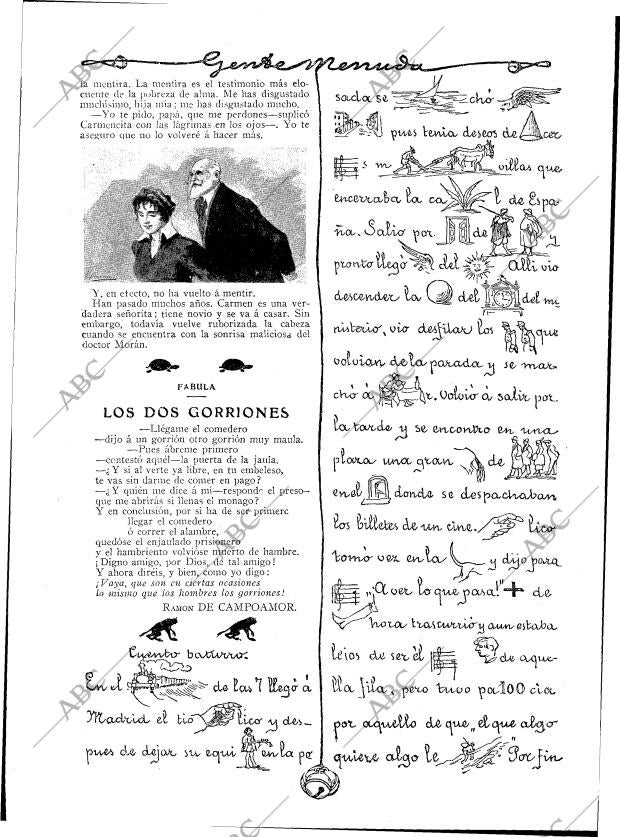 Gente Menuda
la mentira. La mentira es el testimonio más elo-
cuente de la pobreza de alma. Me has disgustado
muchísimo, hija mía; me has disgustado mucho.
—Yo te pido, papá, que me perdones—suplicó
Carmencita con las lágrimas en los ojos—. Yo te
aseguro que no lo volveré á hacer más.
Y, en efecto, no ha vuelto á mentir.
Han pasado muchos años. Carmen es una ver-
dadera señorita; tiene novio y se va á casar. Sin
embargo, todavía vuelve ruborizada la cabeza
cuando se encuentra con la sonrisa maliciosa del
doctor Morán.
FABULA
LOS DOS GORRIONES
—Llégame el comedero
—dijo á un gorrión otro gorrión muy maula.
—Pues ábreme primero
—contestó aquél—la puerta de la jaula.
—¿Y si al verte ya libre, en tu embeleso,
te vas sin darme de comer en pago?
—¿Y quién me dice á mí—responde el preso—
que me abrirás si llenas el monago?
Y en conclusión, por si ha de ser primero
llegar el comedero
ó correr el alambre,
quedóse el enjaulado prisionero
y el hambriento volvióse muerto de hambre.
¡Digno amigo, por Dios, de tal amigo!
Y ahora diréis, y bien, como yo digo:
¡Vaya, que son en ciertas ocasiones
lo mismo que los hombres los gorriones!
RAMON DE CAMPOAMOR.
Cuento baturro.
En el de las 7 llegó á
Madrid el tió lico y des-
pues de dejar su equi en la po
sada se chó
pues tenia deseos de cer
s m villas que
encerraba la ca l de Espa
ña. Salio por de y
pronto llegó del Alli vio
descender la del del mi
nisterio, vio desfilar los que
volvian de la parada y se mar-
chó á r. Volvió á salir por
la tarde y se encontro en una
plaza una gran de
en el donde se despachaban
los billetes de un cine. lico
tomó vez en la y dijo para
"¡A ver lo que pasa!" + de
hora trascurrió y aun estaba
lejos de ser él de aque-
lla fila, pero tuvo pa 100 cia
por aquello de que "el que algo
quiere algo le " Por fin
ABC
ABC
ABC
ABC
ABC
ABC
ABC
ABC
ABC
ABC
ABC
ABC